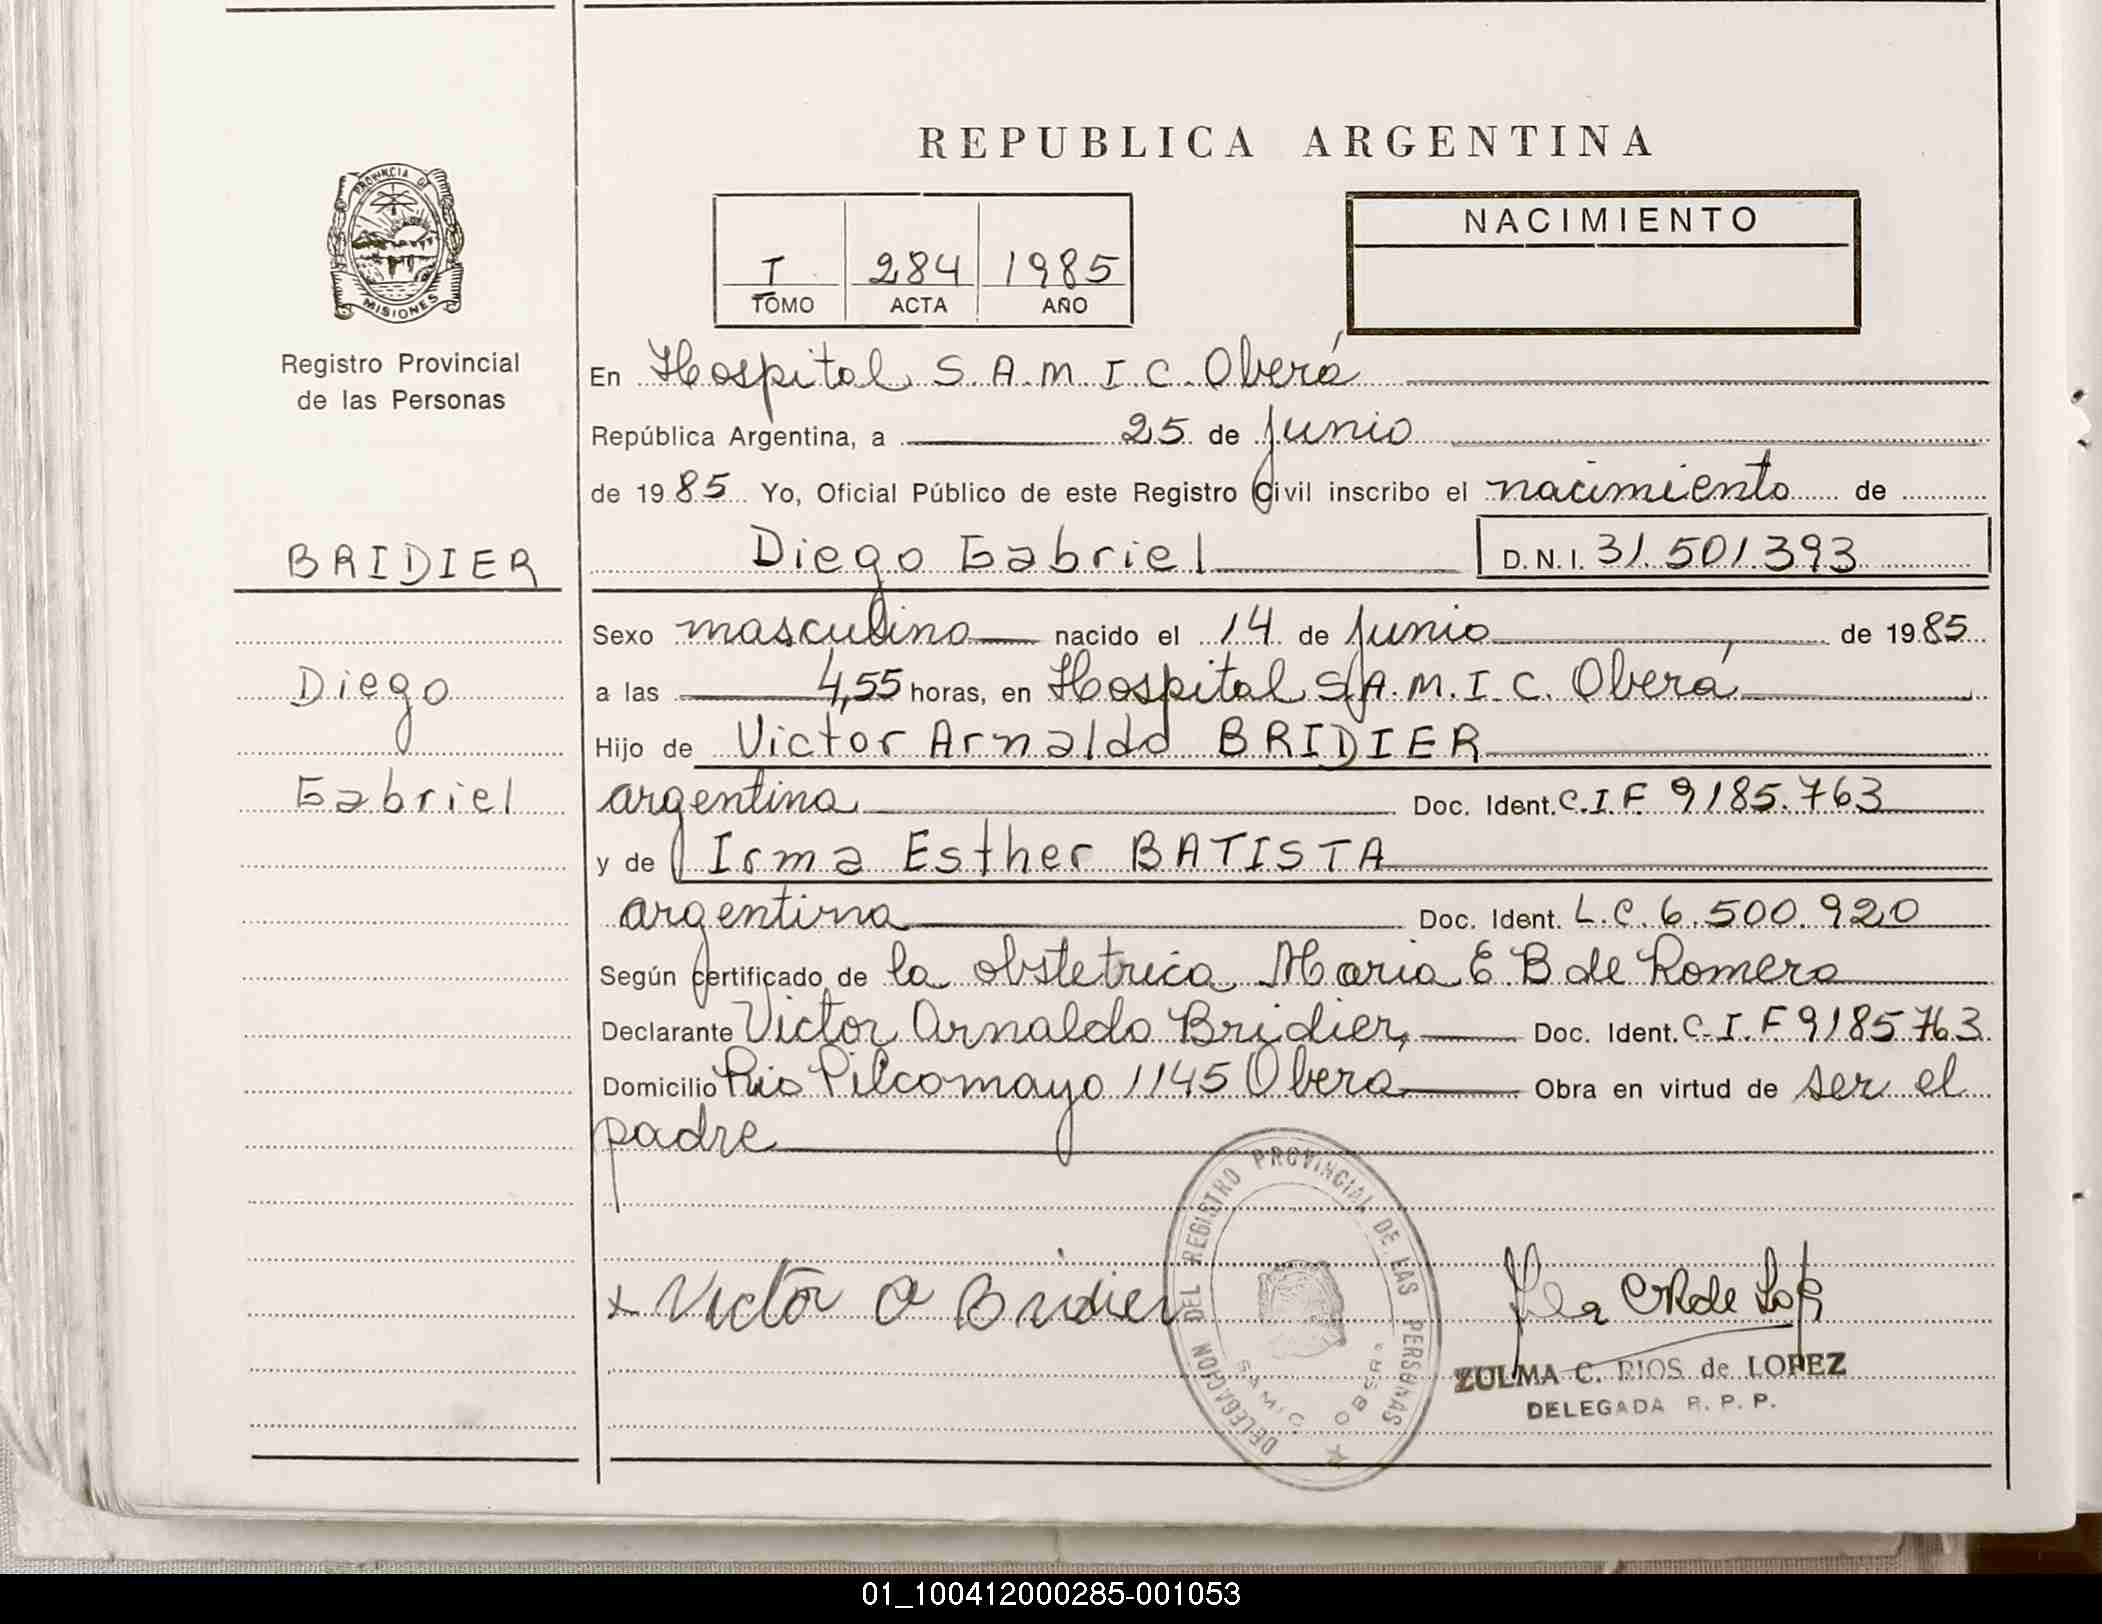 REPUBLICA ARGENTINA
PROVINCIA DE
MISIONES
Registro Provincial
de las Personas
NACIMIENTO
I 284 1985
TOMO ACTA AÑO
En Hospital S.A.M.I.C. Oberá
República Argentina, a 25 de Junio
de 1985 Yo, Oficial Público de este Registro Civil inscribo el nacimiento de
BRIDIER
Diego Gabriel D.N.I. 31.501.393
Sexo masculino nacido el 14 de Junio de 1985
Diego
a las 4,55 horas, en Hospital S.A.M.I.C. Oberá
Hijo de Victor Arnaldo BRIDIER
Gabriel
argentina Doc. Ident. C.I.F 9185.763
y de Irma Esther BATISTA
argentina Doc. Ident. L.C. 6.500.920
Según certificado de la obstetrica Maria E. B de Romero
Declarante Victor Arnaldo Bridier, Doc. Ident. C.I.F 9185763
Domicilio Rio Pilcomayo 1145 Obera Obra en virtud de ser el
padre
x Victor A Bridier
DELEGACION DEL REGISTRO PROVINCIAL DE LAS PERSONAS
SAMIC OBERA
ZULMA C. RIOS de LOPEZ
DELEGADA R. P. P.
01_100412000285-001053